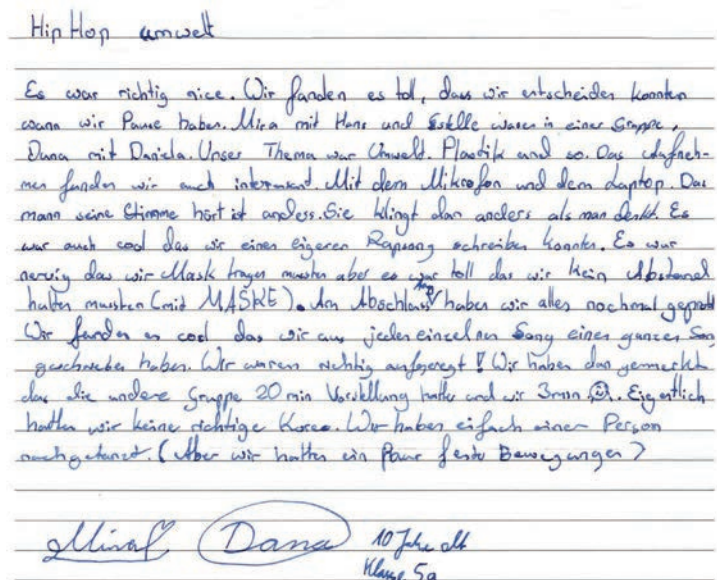 Hip Hop umwelt
Es war richtig nice. Wir fanden es toll, dass wir entscheiden konnten
wann wir Pause haben. Mira mit Hans und Estelle waren in einer Gruppe,
Dana mit Daniela. Unser Thema war Umwelt. Plastik und so. Das Aufneh-
men fanden wir auch interesant. Mit dem Mikrofon und dem Laptop. Das
mann seine Stimme hört ist anders. Sie klingt dan anders als man denkt. Es
war auch cool das wir einen eigenen Rapsong schreiben konnten. Es war
nervig das wir Mask tragen mussten aber es war toll das wir kein Abstand
halten mussten (mit MASKE). Am Abschluss Tag haben wir alles nochmal geprobt
Wir fanden es cool das wir aus jeden einzelnen Song einen ganzen Song
geschrieben haben. Wir waren richtig aufgeregt! Wir haben dan gemerkt
das die andere Gruppe 20 min Vorstellung hatte und wir 3min ☺. Eigentlich
hatten wir keine richtige Koreo. Wir haben eifach einer Person
nachgetanzt. (Aber wir hatten ein Paar feste Bewegungen)
Mira Dana 10 Jahre alt
Klasse 5a